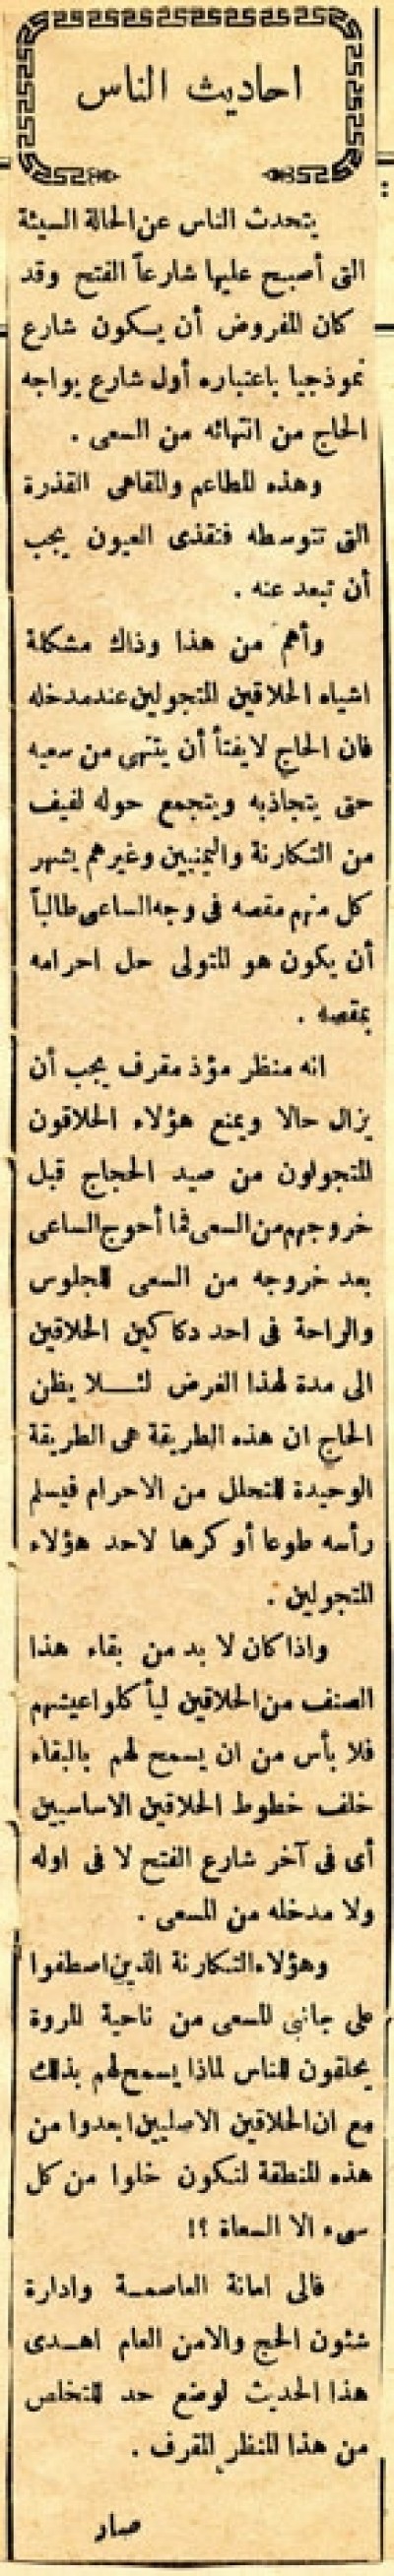 احاديث الناس
يتحدث الناس عن الحالة السيئة
التى أصبح عليها شارعاً الفتح وقد
كان المفروض أن يكون شارع
نموذجيا باعتباره أول شارع يواجه
الحاج من انتهائه من السعى .
وهذه المطاعم والمقاهى القذرة
التى تتوسطه فتقذى العيون يجب
أن تبعد عنه .
وأهم من هذا وذاك مشكلة
اشياه الحلاقين المتجولين عندمدخله
فان الحاج لايفتأ أن ينتهى من سعيه
حتى يتجاذبه ويتجمع حوله لفيف
من التكارنة واليمنيين وغيرهم يشهر
كل منهم مقصه فى وجه الساعى طالباً
أن يكون هو المتولى حل احرامه
بمقصه .
انه منظر مؤذ مقرف يجب أن
يزال حالا ويمنع هؤلاء الحلاقون
المتجولون من صيد الحجاج قبل
خروجهم من السعى فما أحوج الساعى
بعد خروجه من السعى للجلوس
والراحة فى احد دكاكين الحلاقين
الى مدة لهذا الغرض لئـلا يظن
الحاج ان هذه الطريقة هى الطريقة
الوحيدة للتحلل من الاحرام فيسلم
رأسه طوعا أو كرها لاحد هؤلاء
المتجولين .
واذا كان لا بد من بقاء هذا
الصنف من الحلاقين ليأكلوا عيشهم
فلا بأس من ان يسمح لهم بالبقاء
خلف خطوط الحلاقين الاساسيين
أى فى آخر شارع الفتح لا فى اوله
ولا مدخله من المسعى .
وهؤلاء التكارنة الذين اصطفوا
على جانبى المسعى من ناحية المروة
يحلقون للناس لماذا يسمح لهم بذلك
مع ان الحلاقين الاصليين ابعدوا من
هذه المنطقة لتكون خلوا من كل
سىء الا السعاة ؟!
فالى امانة العاصمـة وادارة
شئون الحج والامن العام اهـدى
هذا الحديث لوضع حد للتخلص
من هذا المنظر المقرف .
صار